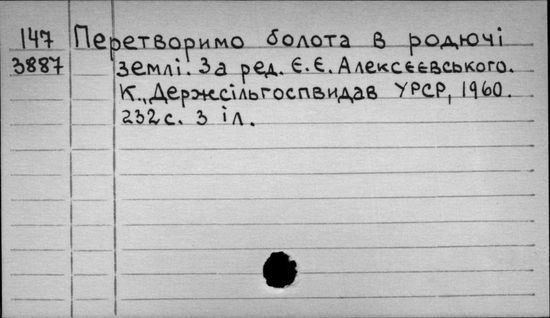 147 Перетворимо болота в родючі
3887 землі. За ред. Є.Є. Алексєєвського.
К., Держсільгоспвидав УРСР, 1960.
232 с. з іл.